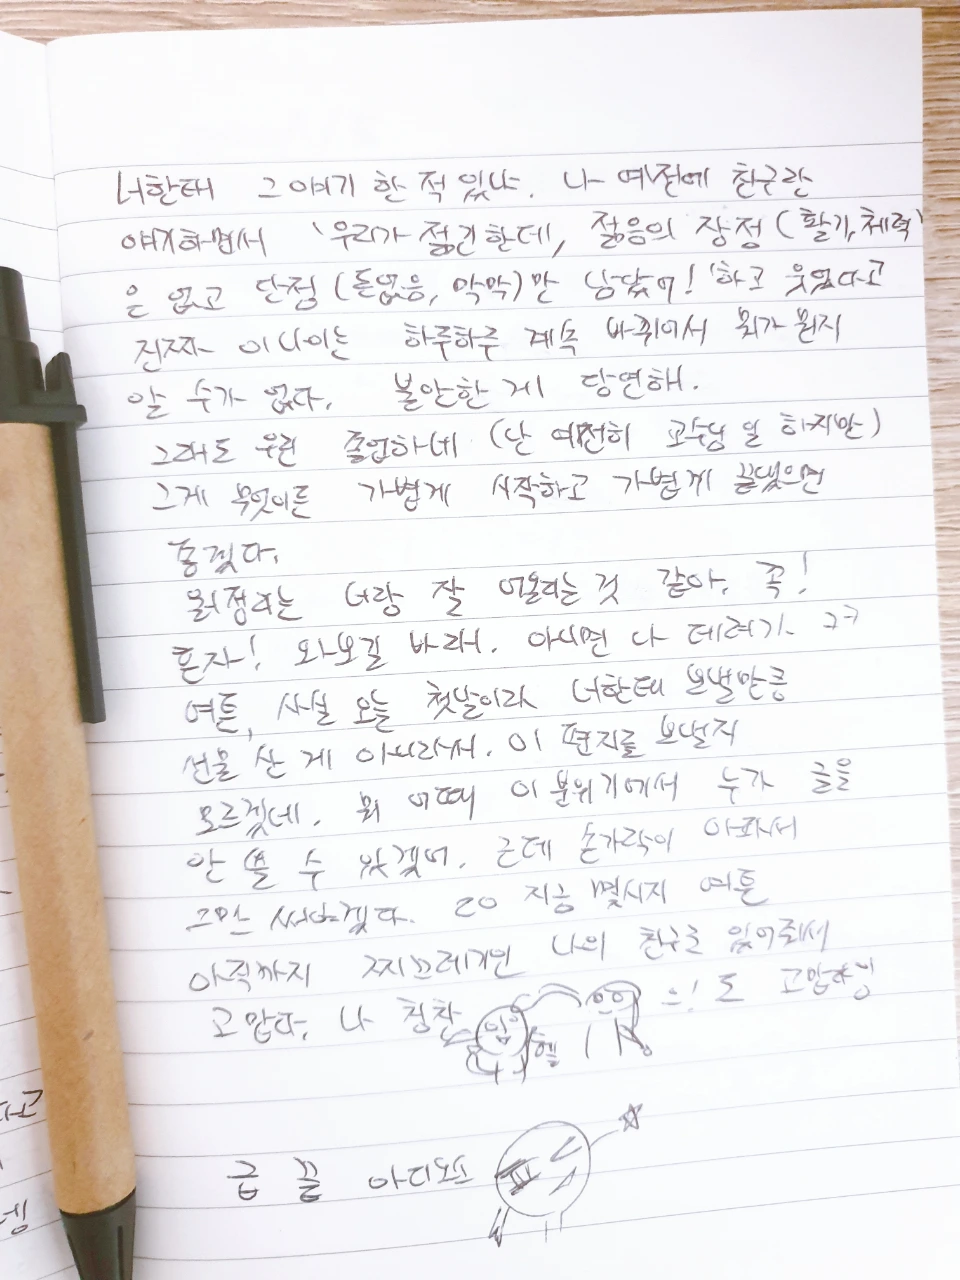 너한테 그 얘기 한 적 있나. 나 예전에 친구랑
얘기하면서 '우리가 젊긴한데, 젊음의 장점(활기,체력)
은 없고 단점(돈없음, 막막)만 남았어!' 하고 웃었다고
진짜 이 나이는 하루하루 계속 바뀌어서 뭐가 뭔지
알 수가 없다. 불안한 게 당연해.
그래도 우린 졸업하네 (난 여전히 교수님 일 하지만)
그게 무엇이든 가볍게 시작하고 가볍게 끝냈으면
좋겠다.
너랑 잘 어울리는 것 같아. 꼭!
혼자! 와보길 바래. 아니면 나 데려가. ㅋㅋ
여튼, 사실 오늘 첫날이라 너한테 보낼만큼
선물 산 게 아니라서. 이 편지를 보낼지
모르겠네. 뭐 어때 이 분위기에서 누가 글을
안 쓸 수 있겠어. 근데 손가락이 아파서
그만 써야겠다. 20 지금 몇시지 여튼
아직까지 찌끄레기인 나의 친구로 있어줘서
고맙다. 나 칭찬 도 고맙다잉
힘
헬
급 끝 아디오